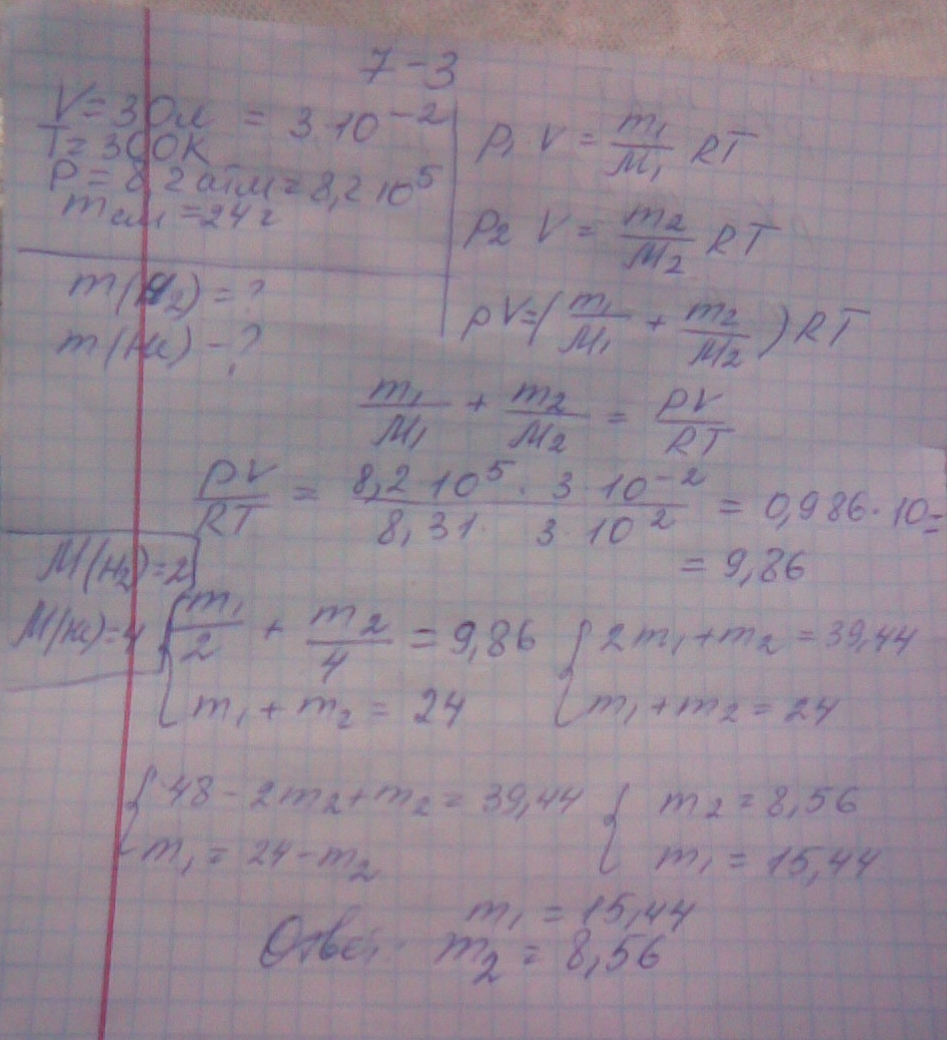 7-3
V = 30л = 3 10⁻²
T = 300K
P = 8,2 атм = 8,2 10⁵
m см = 24 г
m(H₂) = ?
m(He) - ?
P₁ V = m₁/M₁ RT
P₂ V = m₂/M₂ RT
pV = (m₁/M₁ + m₂/M₂) RT
m₁/M₁ + m₂/M₂ = PV/RT
PV/RT = 8,2 10⁵ · 3 · 10⁻² / 8,31 · 3 · 10² = 0,986 · 10 =
= 9,86
M(H₂) = 2
M(He) = 4
{ m₁/2 + m₂/4 = 9,86 { 2m₁ + m₂ = 39,44
m₁ + m₂ = 24 m₁ + m₂ = 24
{ 48 - 2m₂ + m₂ = 39,44 { m₂ = 8,56
m₁ = 24 - m₂ m₁ = 15,44
m₁ = 15,44
Ответ: m₂ = 8,56